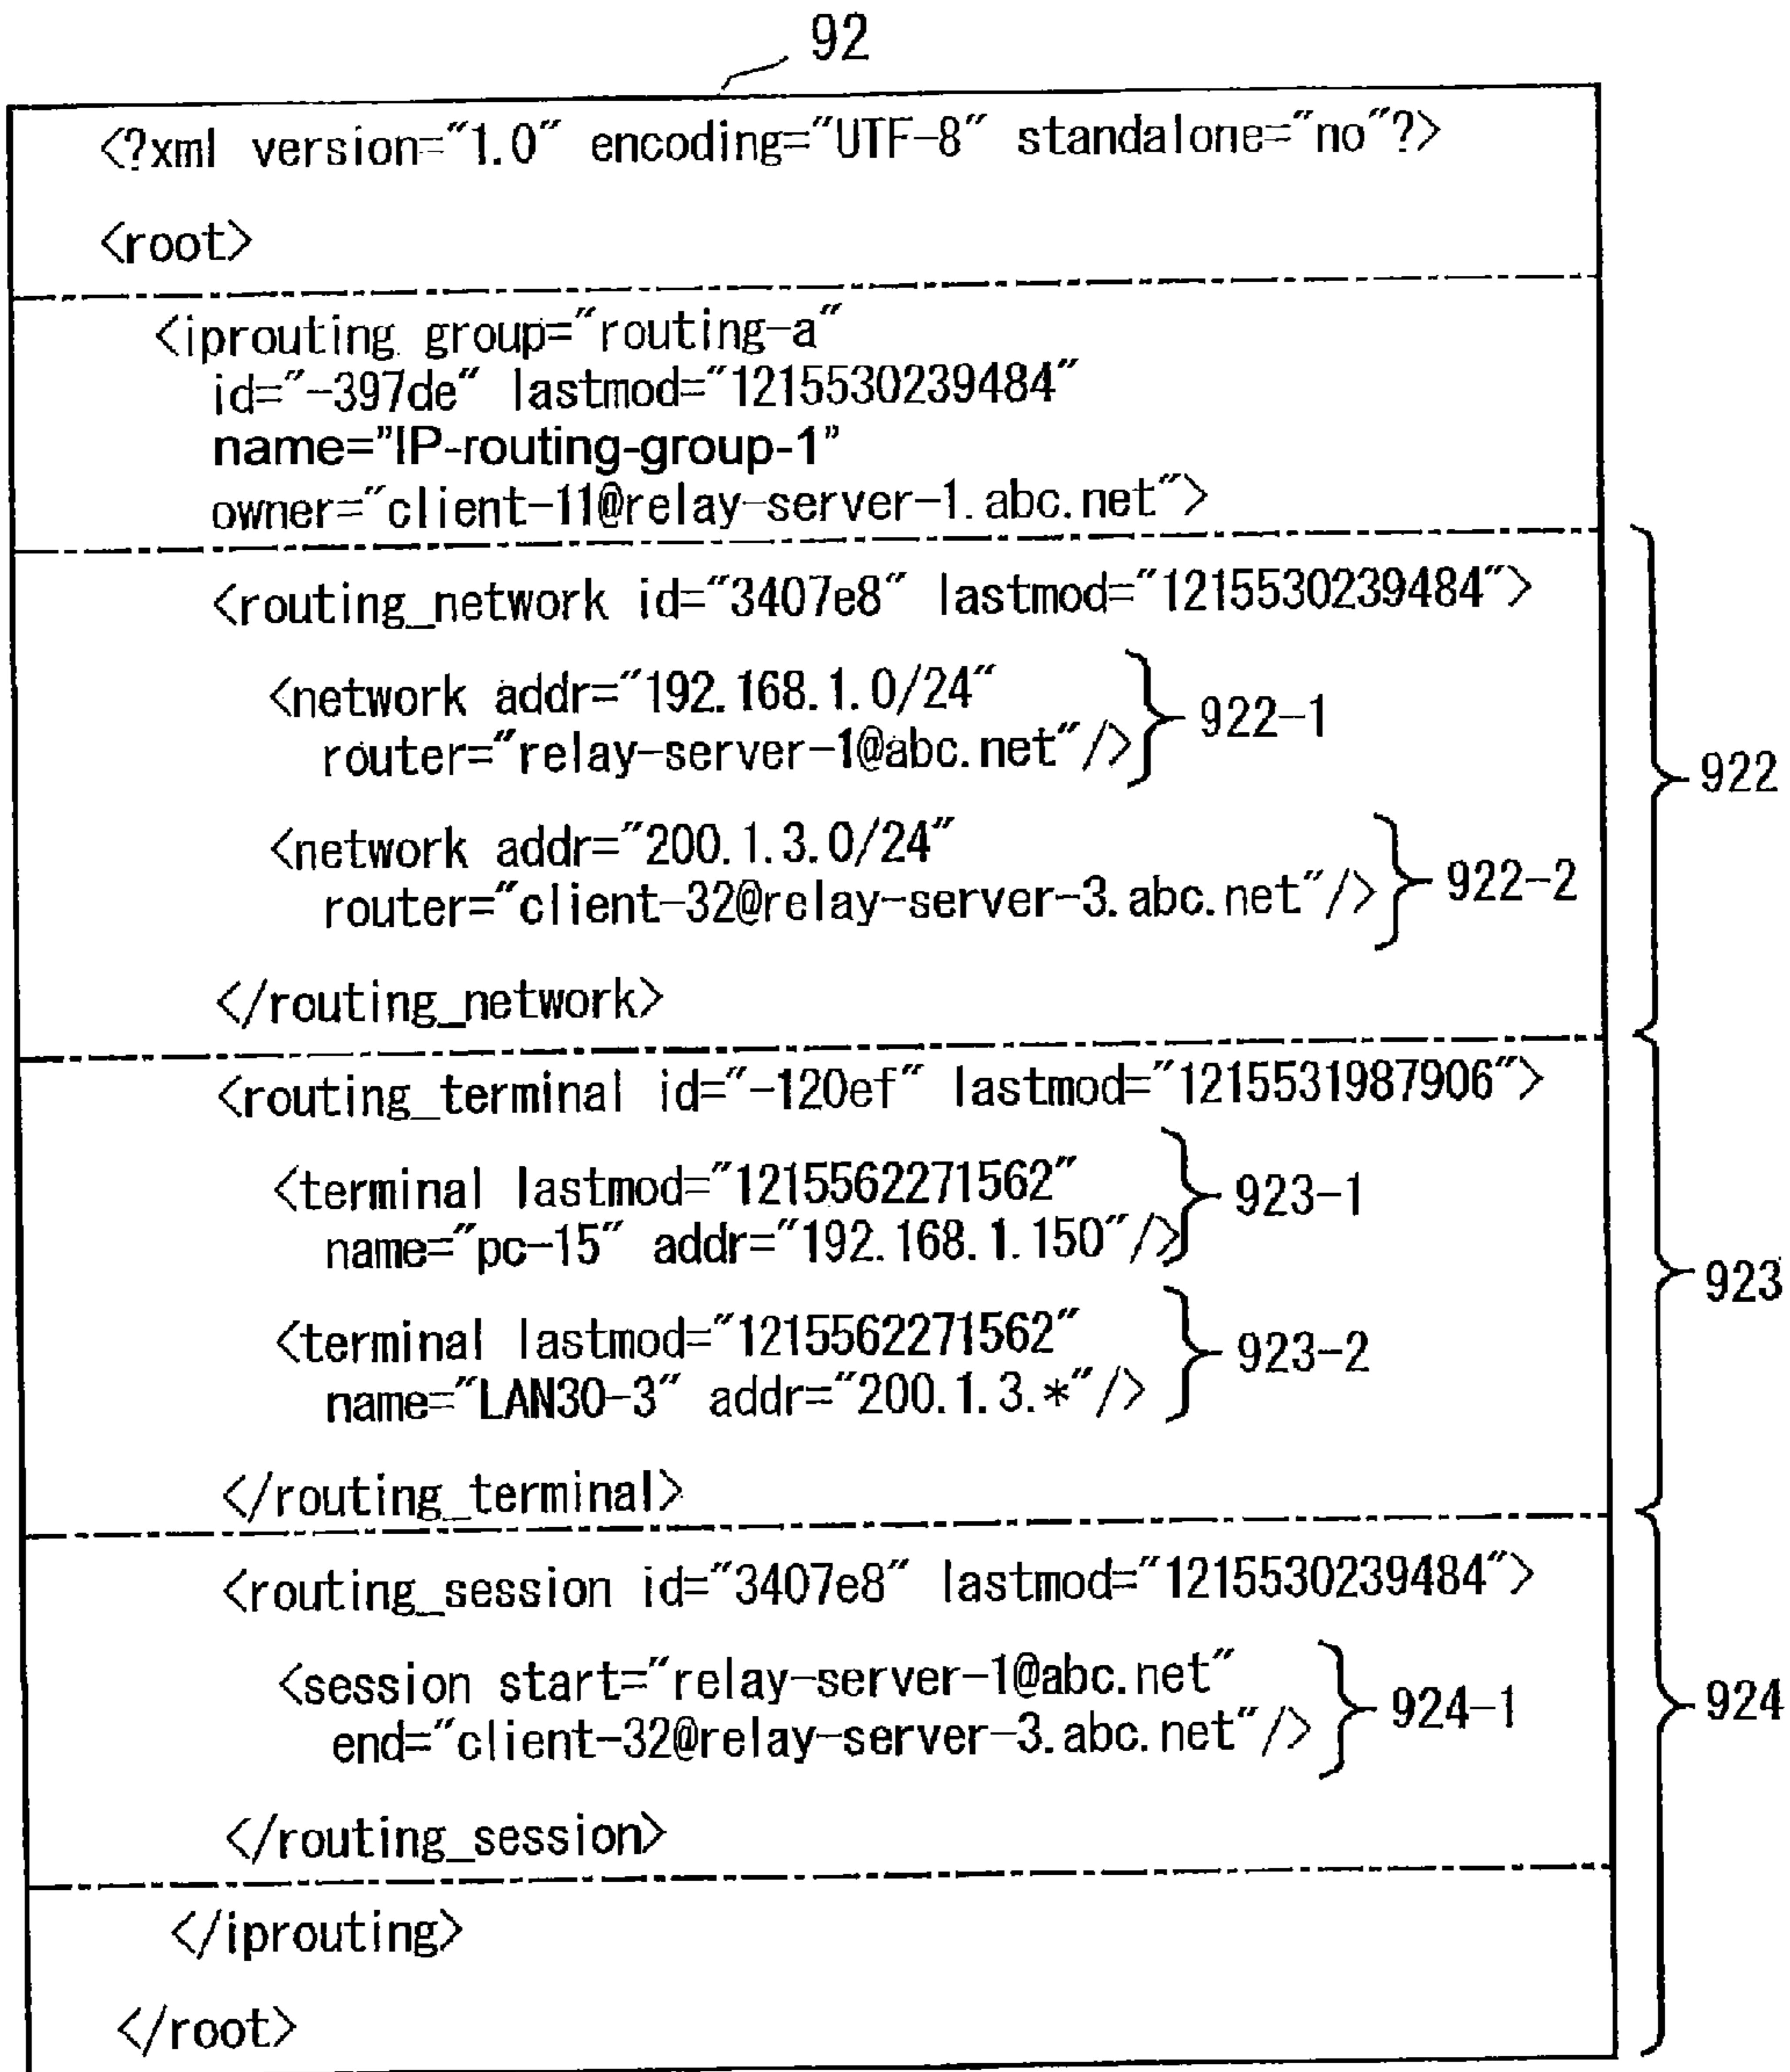 92
<?xml version="1.0" encoding="UTF-8" standalone="no"?>
<root>
<iprouting group="routing-a"
id="-397de" lastmod="1215530239484"
name="IP-routing-group-1"
owner="client-11@relay-server-1.abc.net">
<routing_network id="3407e8" lastmod="1215530239484">
<network addr="192.168.1.0/24"
router="relay-server-1@abc.net"/>
922-1
<network addr="200.1.3.0/24"
router="client-32@relay-server-3.abc.net"/>
922-2
</routing_network>
922
<routing_terminal id="-120ef" lastmod="1215531987906">
<terminal lastmod="1215562271562"
name="pc-15" addr="192.168.1.150"/>
923-1
<terminal lastmod="1215562271562"
name="LAN30-3" addr="200.1.3.*"/>
923-2
</routing_terminal>
923
<routing_session id="3407e8" lastmod="1215530239484">
<session start="relay-server-1@abc.net"
end="client-32@relay-server-3.abc.net"/>
924-1
</routing_session>
924
</iprouting>
</root>